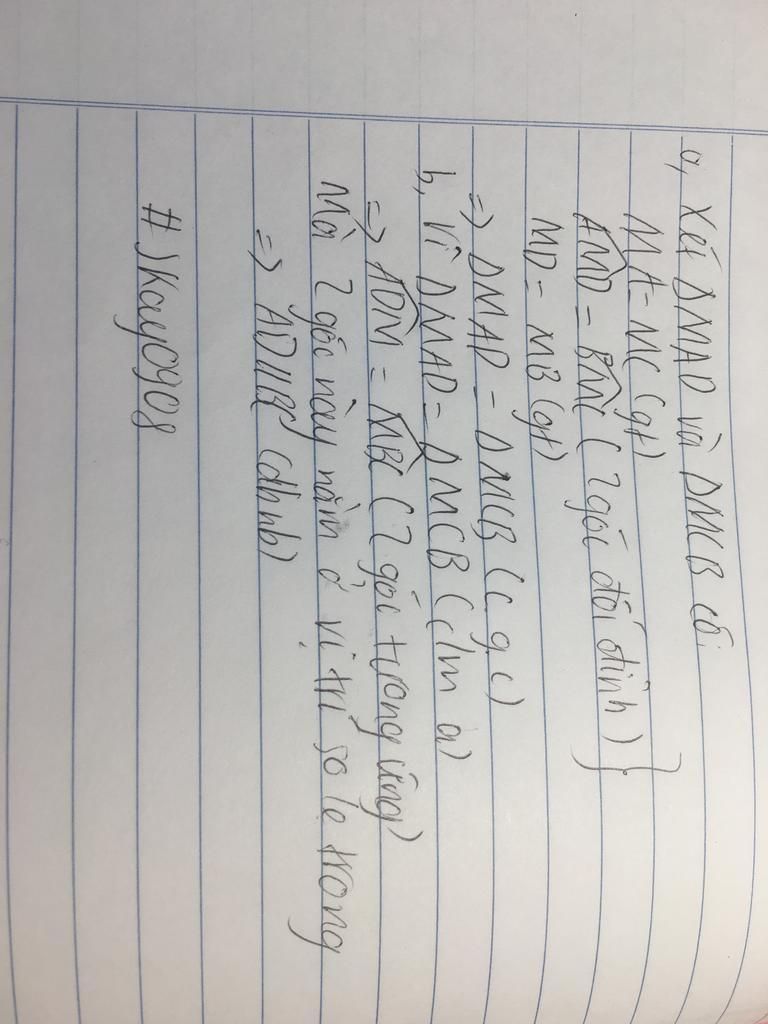 a, Xét ΔMAD và ΔMCB có:
MA = MC (gt)
AMD = BMC (2 góc đối đỉnh) }
MD = MB (gt)
=> ΔMAD = ΔMCB (c.g.c)
b, Vì ΔMAD = ΔMCB (c/m a)
=> ADM = MBC (2 góc tương ứng)
Mà 2 góc này nằm ở vị trí so le trong
=> AD//BC (dhnb)
#Jkay0908